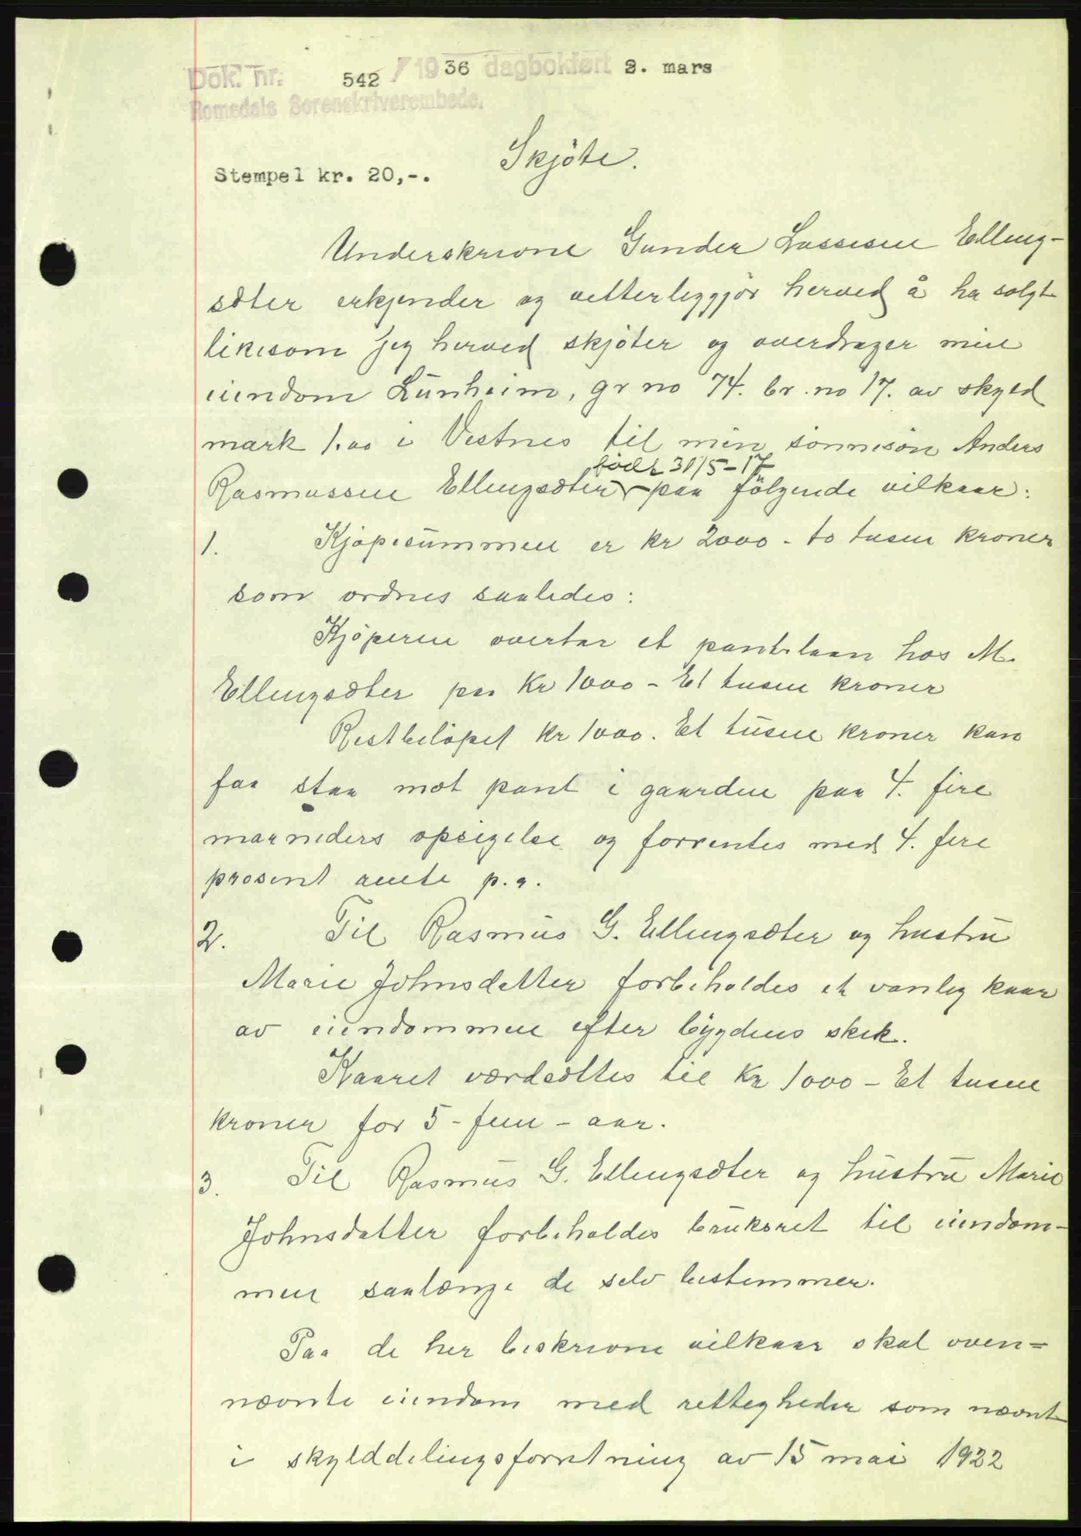 Dok. nr. 542 / 1936 dagbokført 2. mars
Romsdals Sorenskriverembede.
Skjöte.
Stempel kr. 20,-.
Underskrivne Gunder Lassesen Elleng-
sæter erkjender og vetterleggjör herved å ha solgt
likesom jeg herved skjöter og overdrager min
eiendom Lünheim, gr no 74. br. no 17. av skyld
mark 1.00 i Vestnes til min sönnesön Anders
født 31/5-17
Rasmussen Ellengsæter paa fölgende vilkaar:
1. Kjöpesummen er kr 2000 - to tusen kroner
som ordnes saaledes:
Kjöperen overtar et pantelaan hos M.
Ellengsæter paa Kr 1000 - Et tusen kroner
Restbelöpet Kr 1000. Et tusen kroner kan
faa staa mot pant i gaarden paa 4. fire
maaneders opsigelse og forrentes med 4. fire
prosent rente p.a.
2. Til Rasmus G. Ellengsæter og hustru
Marie Johnsdatter forbeholdes et vanleg kaar
av eiendommen efter bygdens skik.
Kaaret værdsættes til Kr 1000 - Et tusen
kroner for 5 - fem - aar.
3. Til Rasmus G. Ellengsæter og hustru Marie
Johnsdatter forbeholdes bruksret til eiendom-
men saalænge de selv bestemmer.
Paa de her beskrevne vilkaar skal oven=
nævnte eiendom med rettegheder som nævnt
i skylddelingsforretning av 15 mai 1922